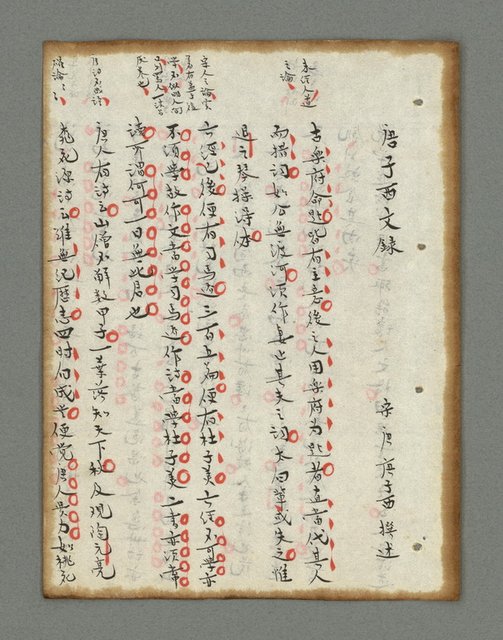 唐子西文錄　宋唐庚子西撰述
未經人道
之論
古樂府命題皆有主意後之人用樂府為題者直當代其人
而措詞如公無渡河須作妻止其夫之詞太白輩或失之惟
退之琴操得体
宋人之論
六經已後便有司馬遷三百五篇便有杜子美六經不可學亦
不須學故作文當學司馬遷作詩當學杜子美二書亦須常
讀所謂何可一日無此君也
唐人有詩云山僧不解數甲子一葉落知天下秋及觀陶元亮
桃花源詩云雖無紀歷志四時自成岁便覺唐人費力如桃花